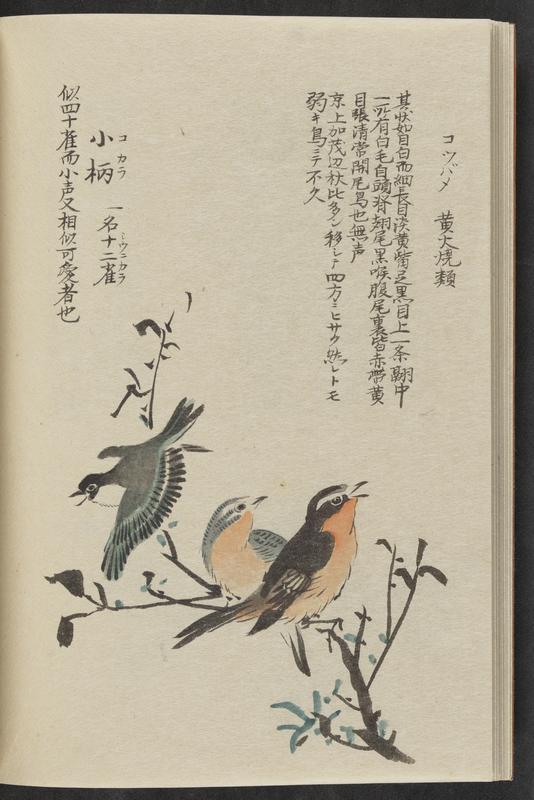 コツバメ 黄火焼類
其状如目白而細長目淡黄觜足黒目上一条翮中
一匹有白毛自頭脊翅尾黒喉腹尾裏皆赤帯黄
目張清常開尾鳥也無声
京上加茂辺秋比多シ移シテ四方ニヒサク然レトモ
弱キ鳥ニテ不久
小柄 コカラ 一名十二雀 ミウニカラ
似四十雀而小声又相似可愛者也